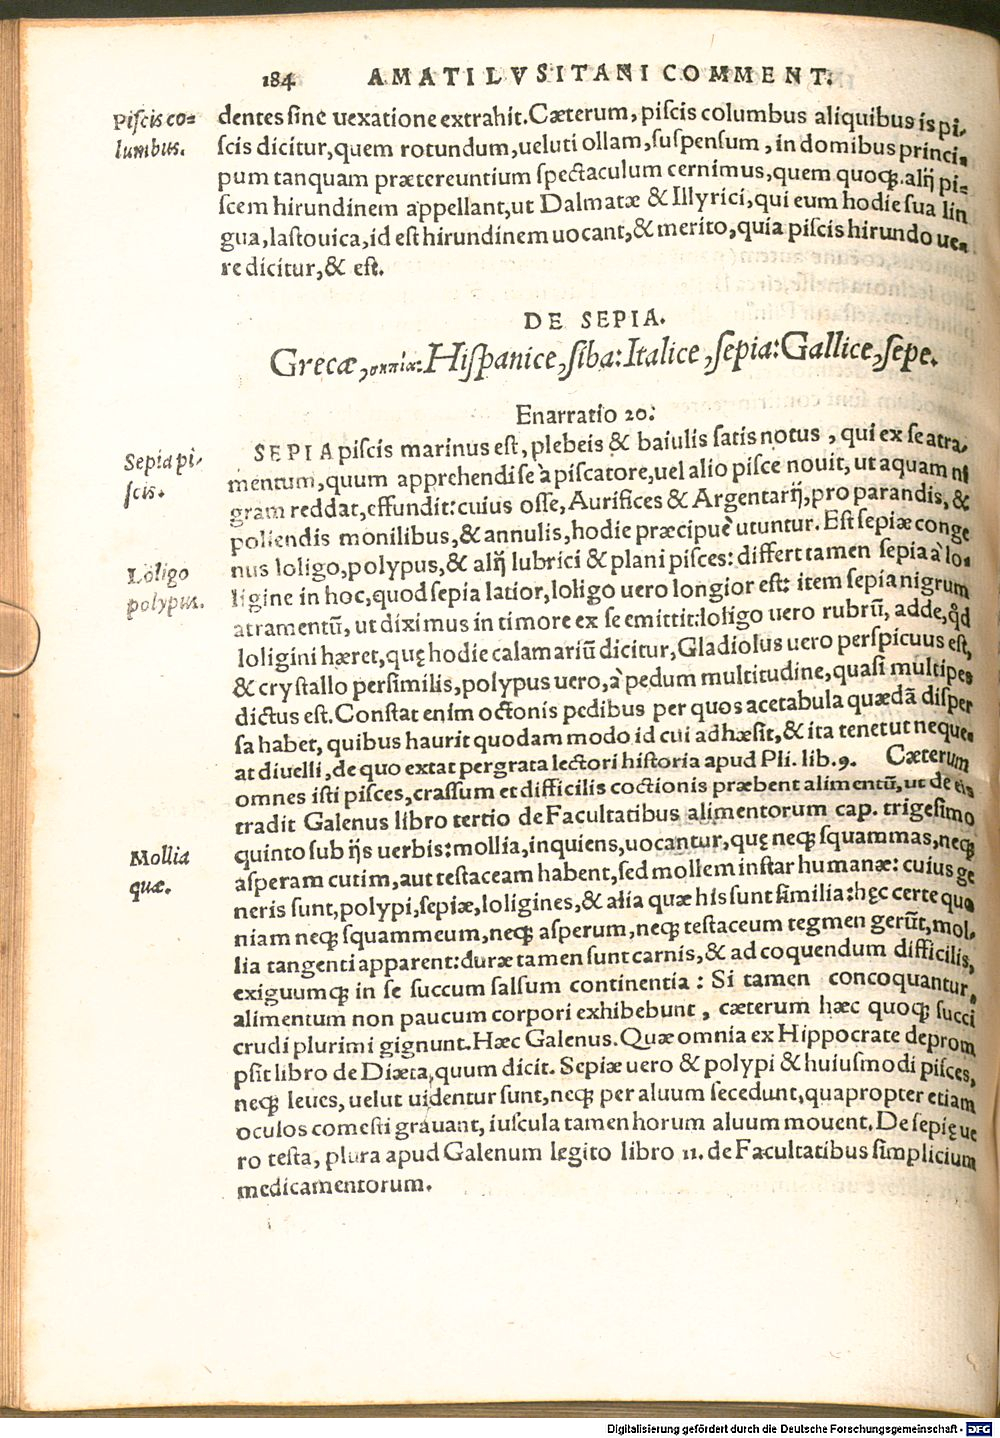 184 AMATI LVSITANI COMMENT.
Piſcis co=
lumbus.
dentes ſine uexatione extrahit. Cæterum, piſcis columbus aliquibus is pi-
ſcis dicitur, quem rotundum, ueluti ollam, ſuſpenſum, in domibus princi-
pum tanquam prætereuntium ſpectaculum cernimus, quem quoq; alij pi=
ſcem hirundinem appellant, ut Dalmatæ & Illyrici, qui eum hodie ſua lin
gua, laſtouica, id eſt hirundinem uocant, & merito, quia piſcis hirundo ue-
re dicitur, & eſt.
DE SEPIA.
Grecæ, σηπία: Hiſpanice, ſiba: Italice, ſepia: Gallice, ſepe.
Enarratio 20.
Sepia pi-
ſcis.
SEPIA piſcis marinus eſt, plebeis & baiulis ſatis notus, qui ex ſe atra-
mentum, quum apprehendi ſe à piſcatore, uel alio piſce nouit, ut aquam ni
gram reddat, effundit: cuius oſſe, Aurifices & Argentarij, pro parandis, &
poliendis monilibus, & annulis, hodie præcipuè utuntur. Eſt ſepiæ conge
Loligo
polypus.
nus loligo, polypus, & alij lubrici & plani piſces: differt tamen ſepia à lo-
ligine in hoc, quod ſepia latior, loligo uero longior eſt: item ſepia nigrum
atramentū, ut diximus in timore ex ſe emittit: loligo uero rubrū, adde, qd̄
loligini hæret, quę hodie calamariū dicitur, Gladiolus uero perſpicuus eſt,
& cryſtallo perſimilis, polypus uero, à pedum multitudine, quaſi multipes
dictus eſt. Conſtat enim octonis pedibus per quos acetabula quædā diſper
ſa habet, quibus haurit quodam modo id cui adhæſit, & ita tenet ut neque-
at diuelli, de quo extat pergrata lectori hiſtoria apud Pli. lib. 9. Cæterum
omnes iſti piſces, craſſum et difficilis coctionis præbent alimentū, ut de eis
tradit Galenus libro tertio de Facultatibus alimentorum cap. trigeſimo
Mollia
quæ.
quinto ſub ijs uerbis: mollia, inquiens, uocantur, quę neq; ſquammas, neq;
aſperam cutim, aut teſtaceam habent, ſed mollem inſtar humanæ: cuius ge
neris ſunt, polypi, ſepiæ, loligines, & alia quæ his ſunt ſimilia: hęc certe quo
niam neq; ſquammeum, neq; aſperum, neq; teſtaceum tegmen gerūt, mol-
lia tangenti apparent: duræ tamen ſunt carnis, & ad coquendum difficilis,
exiguumq; in ſe ſuccum ſalſum continentia: Si tamen concoquantur,
alimentum non paucum corpori exhibebunt, cæterum hæc quoq; ſucci
crudi plurimi gignunt. Hæc Galenus. Quæ omnia ex Hippocrate deprom
pſit libro de Diæta, quum dicit. Sepiæ uero & polypi & huiuſmodi piſces,
neq; leues, uelut uidentur ſunt, neq; per aluum ſecedunt, quapropter etiam
oculos comeſti grauant, iuſcula tamen horum aluum mouent. De ſepię ue
ro teſta, plura apud Galenum legito libro 11. de Facultatibus ſimplicium
medicamentorum.
Digitalisierung gefördert durch die Deutsche Forschungsgemeinschaft - DFG